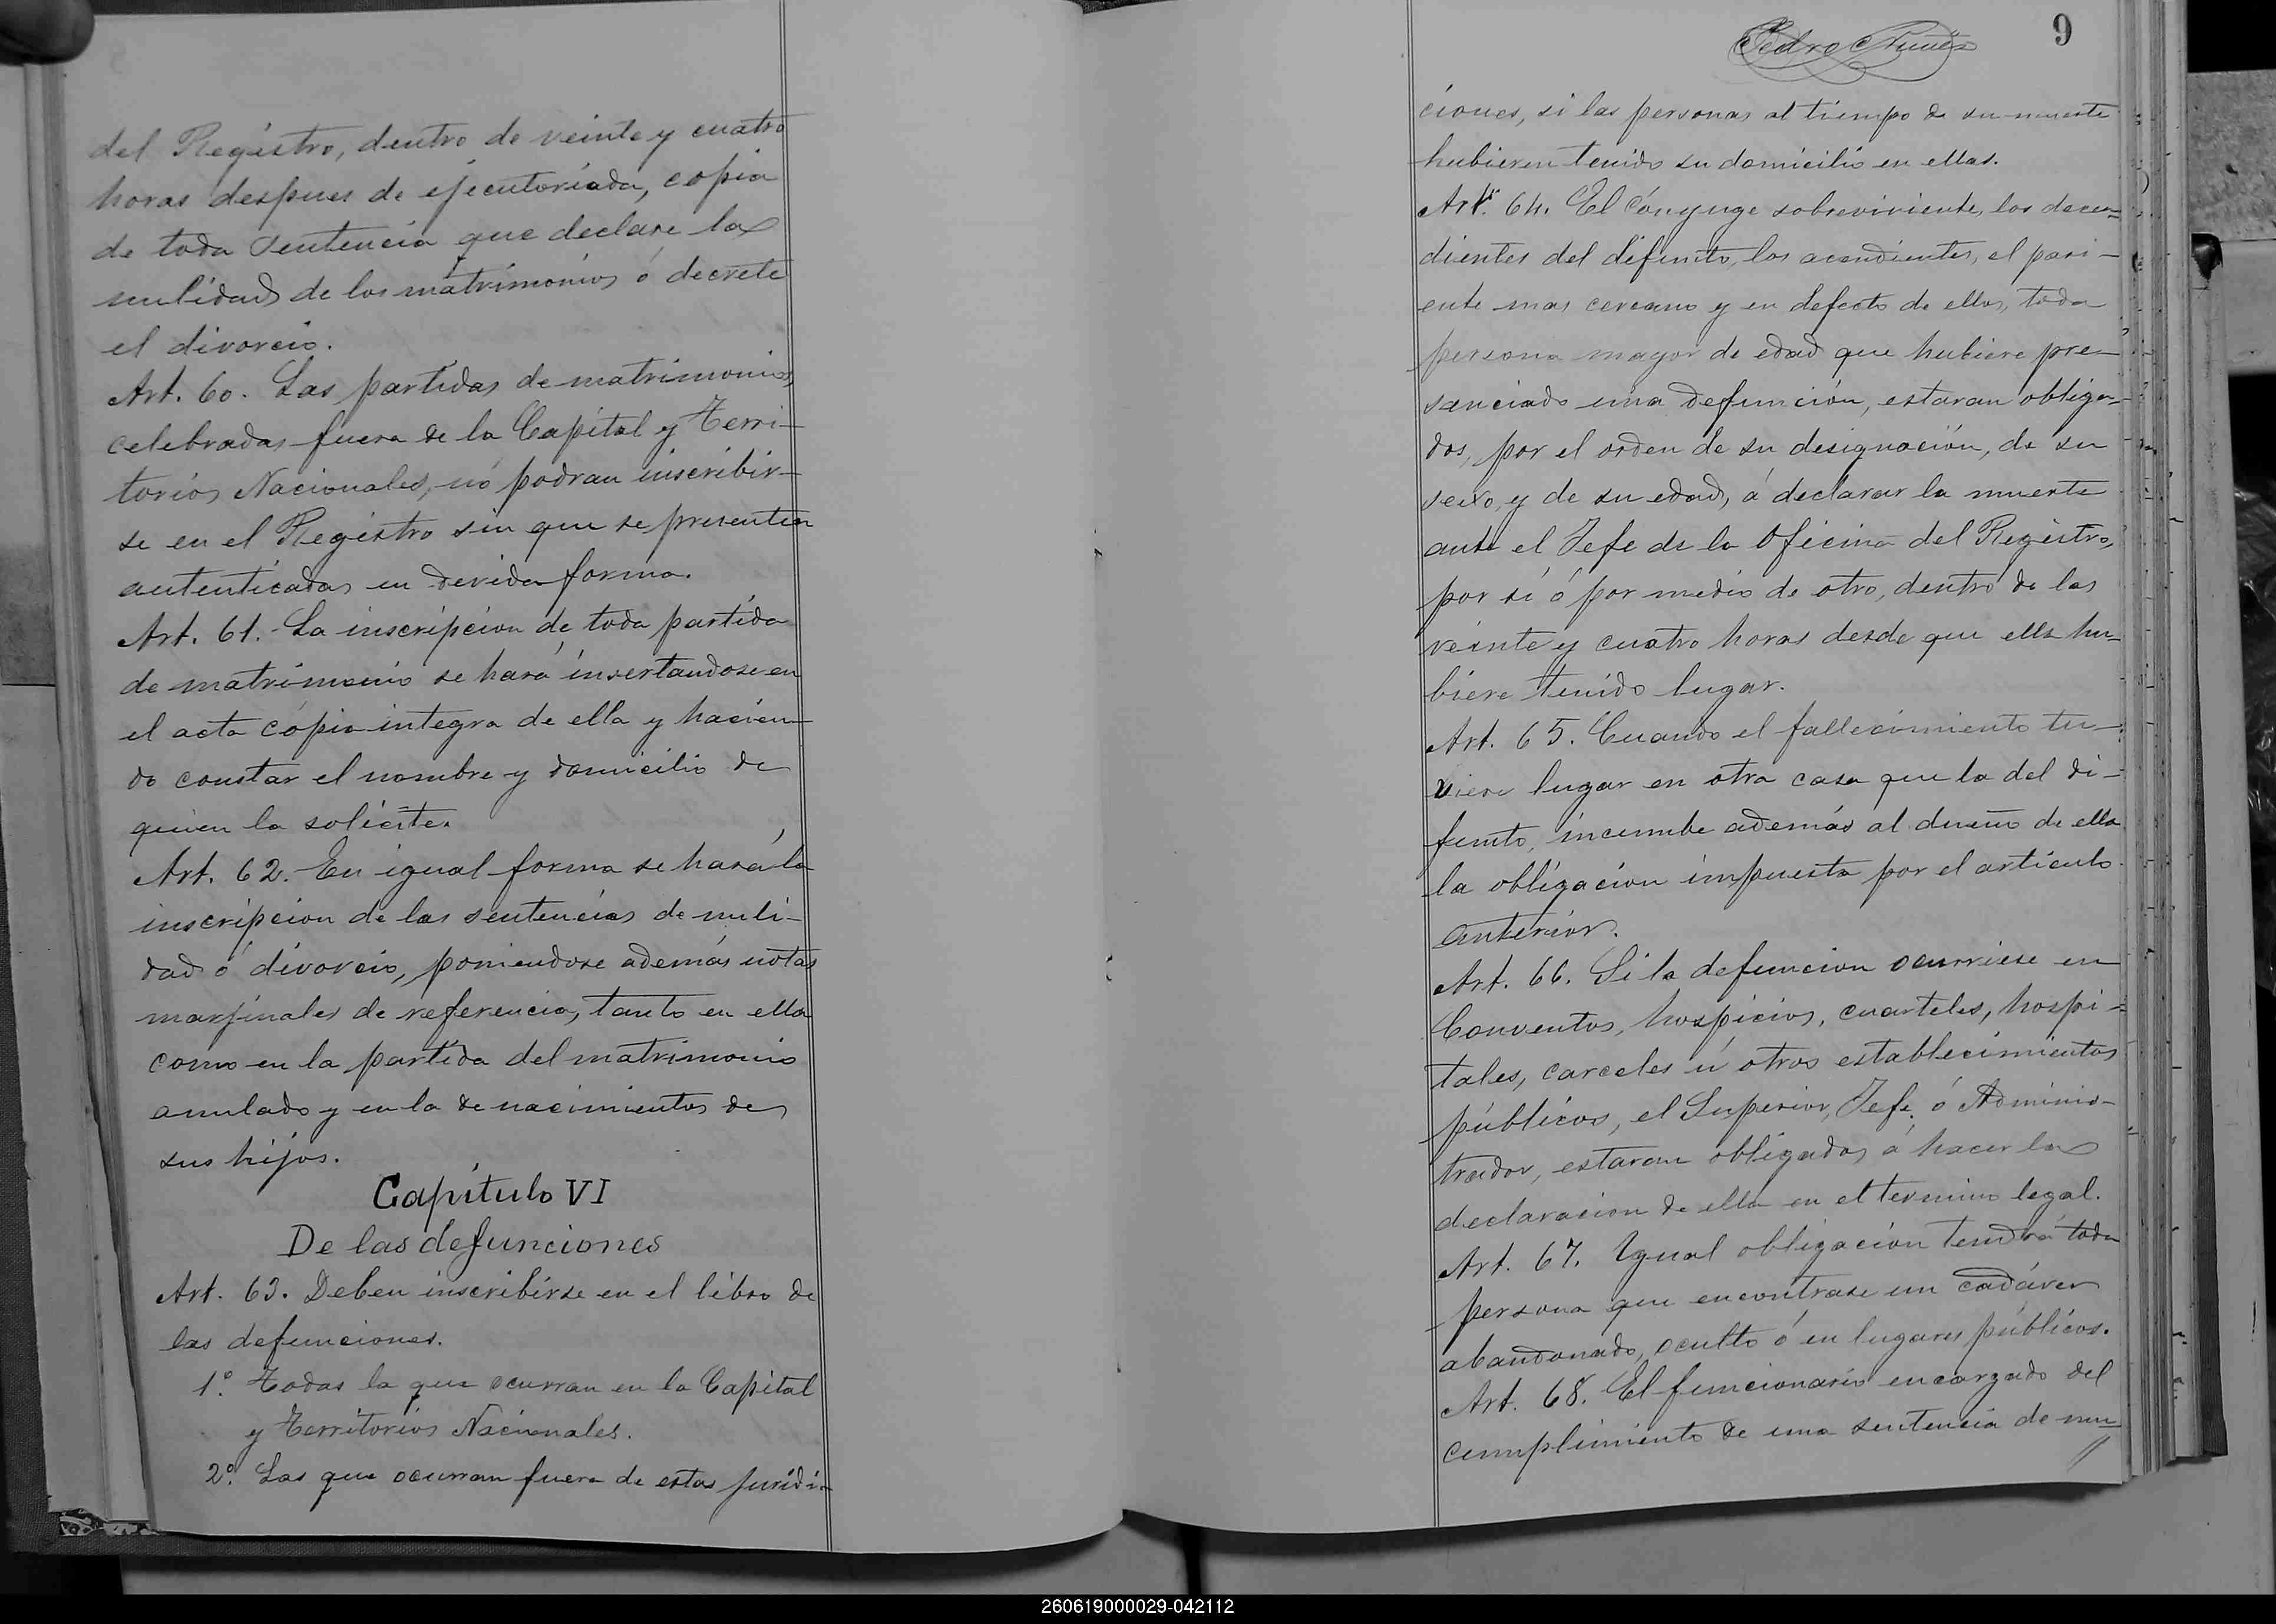 del Registro, dentro de veinte y cuatro
horas despues de ejecutoriada, copia
de toda sentencia que declare la
nulidad de los matrimonios ó decrete
el divorcio.
Art. 60. Las partidas de matrimonios,
celebradas fuera de la Capital y Terri-
torios Nacionales, nó podran inscribir-
se en el Registro sin que se presenten
autenticadas en devida forma.
Art. 61. La inscripcion de toda partida
de matrimonio se hará insertandose en
el acta cópia integra de ella y hacien-
do constar el nombre y domicilio de
quien la solicite.
Art. 62. En igual forma se hará la
inscripcion de las sentencias de nuli-
dad ó divorcio, poniendose además notas
marjinales de referencia, tanto en ella
como en la partida del matrimonio
anulado y en la de nacimientos de
sus hijos.
Capítulo VI
De las defunciones
Art. 63. Deben inscribirse en el libro de
las defunciones.
1º. Todas la que ocurran en la Capital
y Territorios Nacionales.
2º. Las que ocurran fuera de estas juridi-
Pedro Nuñez
9
ciones, si las personas al tiempo de su muerte
hubieren tenido su domicilio en ellas.
Art. 64. El cónyuge sobreviviente, los decen-
dientes del difunto, los acendientes, el pari-
ente mas cercano y en defecto de ellos, toda
persona mayor de edad que hubiere pre-
senciado una defunción, estaran obliga-
dos, por el orden de su designación, de su
sexo, y de su edad, á declarar la muerte
ante el Jefe de la Oficina del Registro,
por si ó por medio de otro, dentro de las
veinte y cuatro horas desde que ella hu-
biere tenido lugar.
Art. 65. Cuando el fallecimiento tu-
viere lugar en otra casa que la del di-
funto, incumbe además al dueño de ella
la obligacion impuesta por el artículo
anterior.
Art. 66. Si la defuncion ocurriese en
Conventos, hospicios, cuarteles, hospi-
tales, carceles ú otros establecimientos
públicos, el Superior, Jefe, ó Adminis-
trador, estaran obligados á hacer la
declaracion de ella en el termino legal.
Art. 67. Igual obligacion tendrá toda
persona que encontrase un cadáver
abandonado, oculto ó en lugares públicos.
Art. 68. El funcionario encargado del
cumplimiento de una sentencia de mu-
260619000029-042112